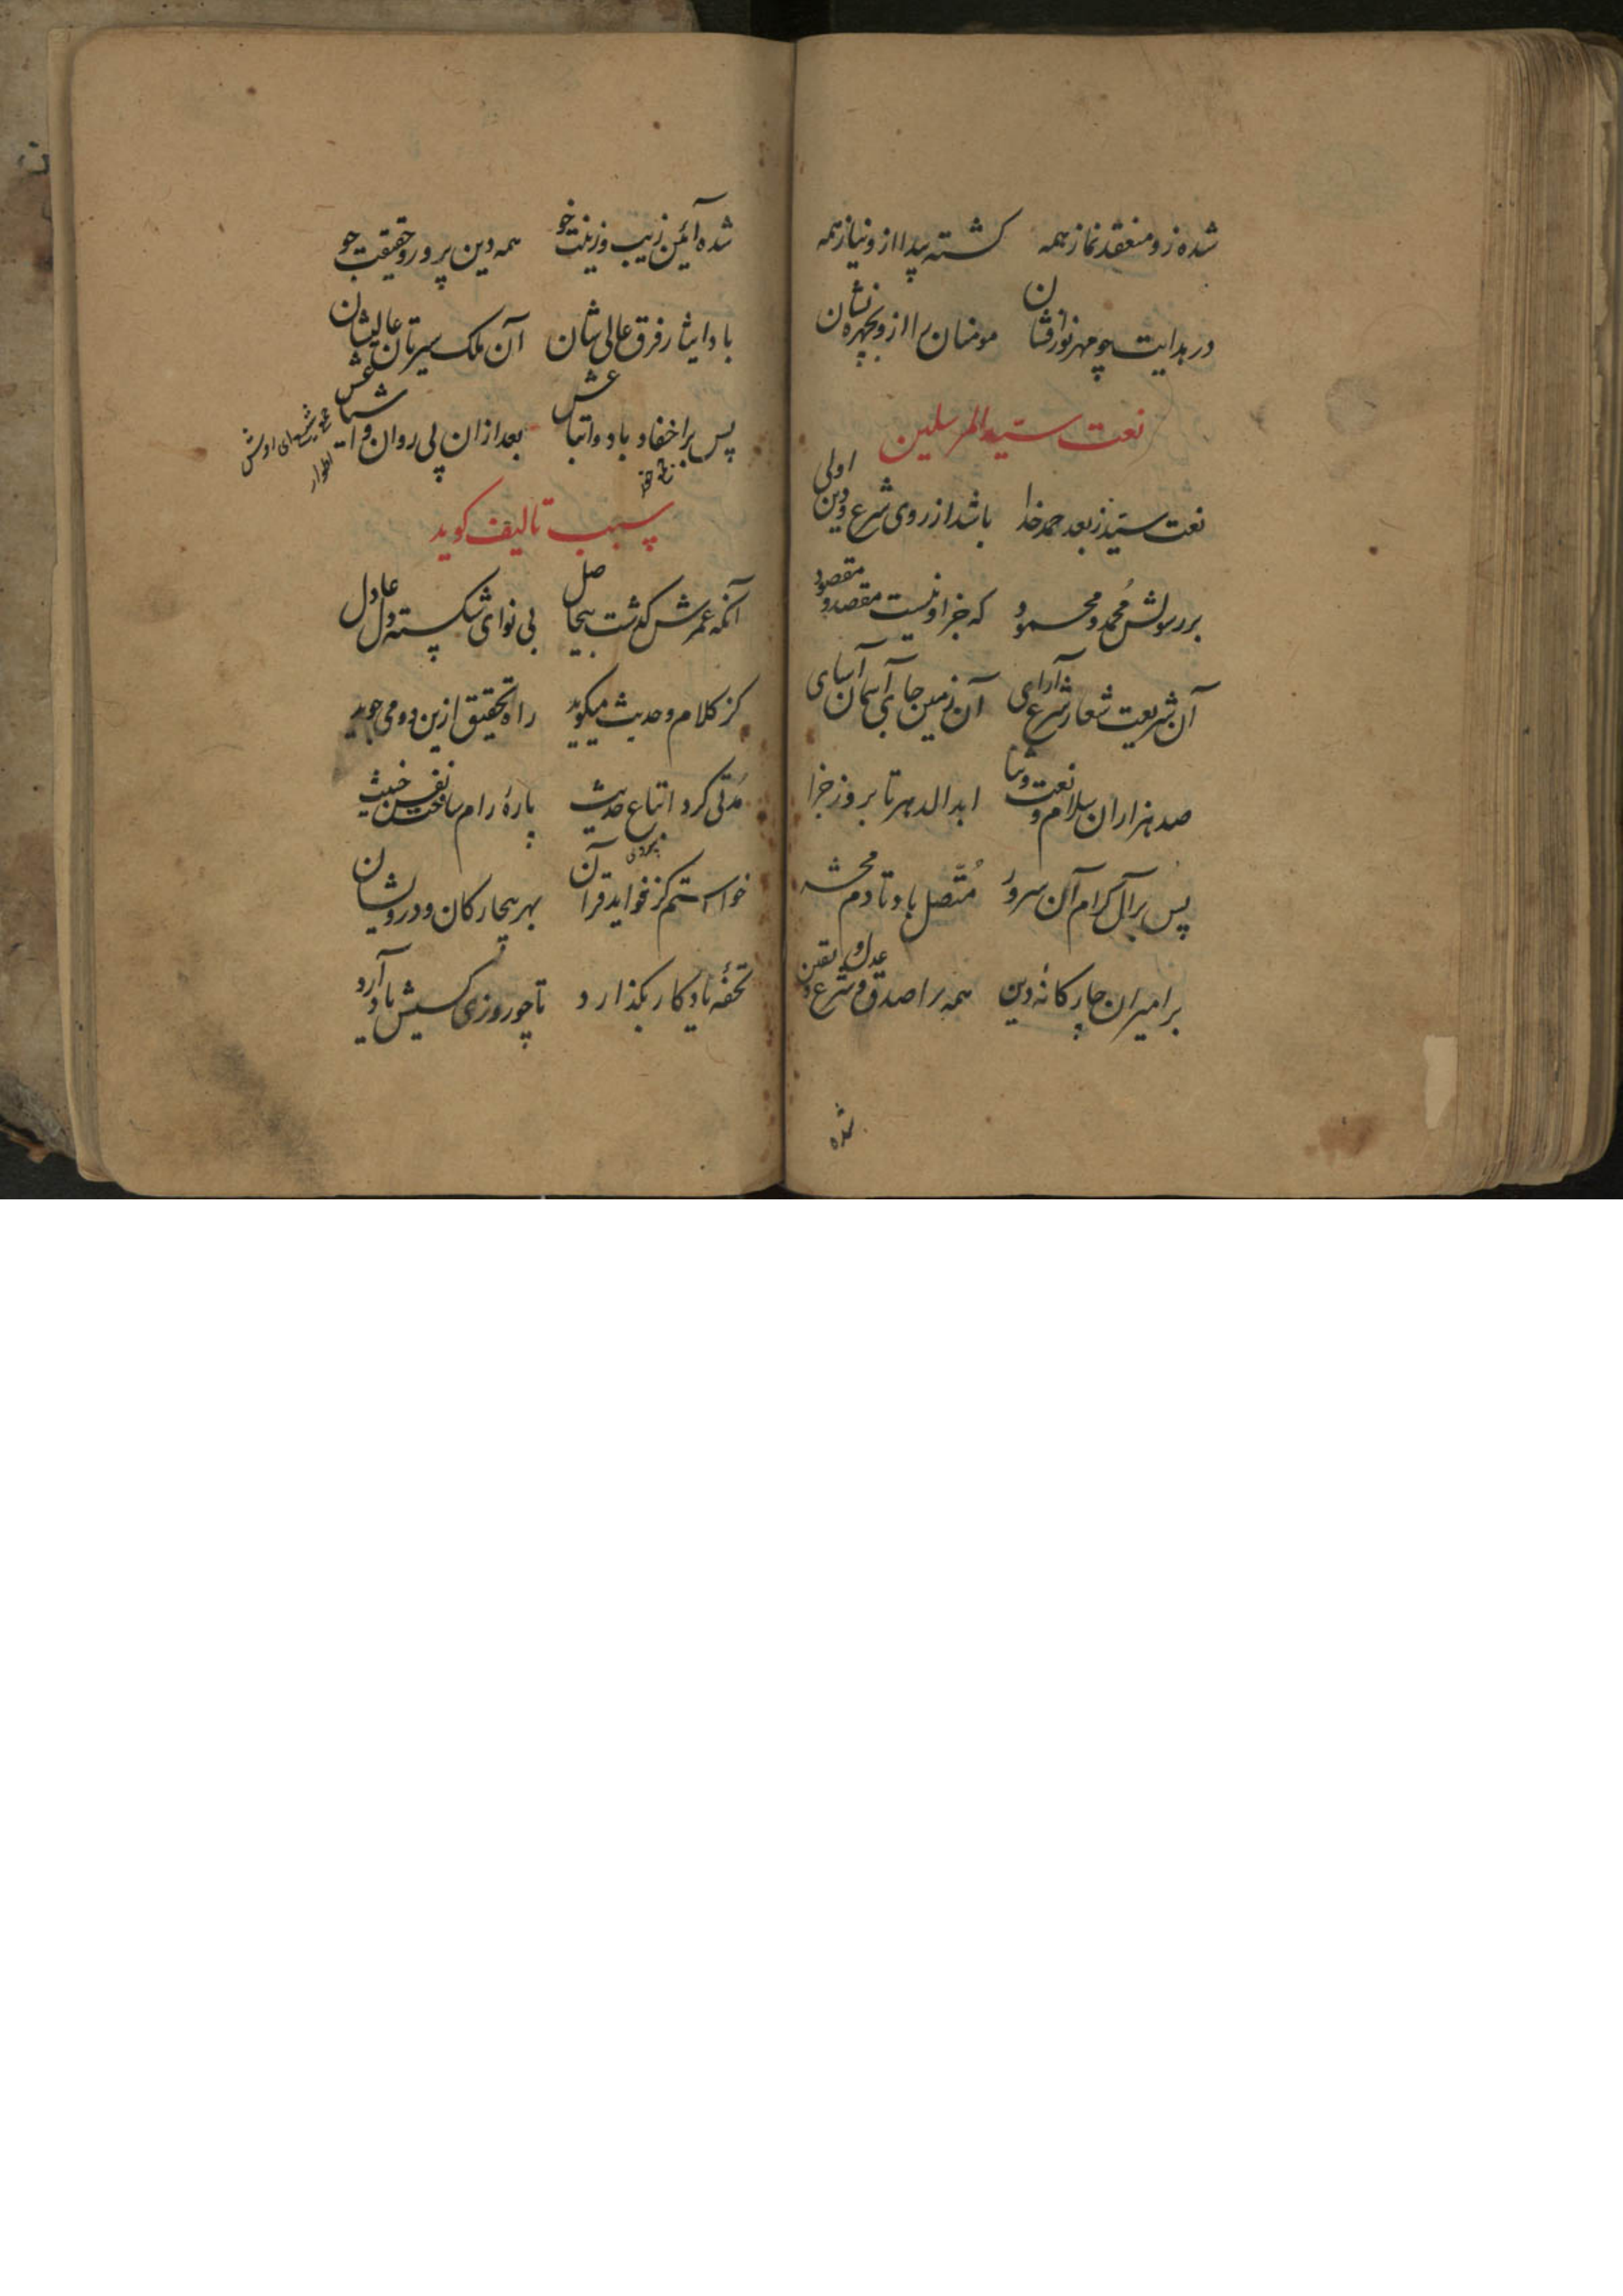 شده زو منعقد نماز همه کشته پیدا ازو نیاز همه
در هدایت چو مهر نور افشان مومنان را ازو بچهره نشان
نعت سید المرسلین
نعت سید ز بعد حمد خدا باشد از روی شرع و دین اولی
بر رسولش مُحمد و محمود که جز او نیست مقصد و مقصود
آن شریعت شعار شرع آرای آن زمین جای آسمان آسای
صد هزاران سلام و نعت و ثنا ابد الدهر تا بروز جزا
پس بر آل کرام آن سرور مُتّصل باد تا دم محشر
بر امیران چار کانهٔ دین همه را صدق و شرع و عدل و یقین
شده
شده آئین زیب و زینت خو همه دین پرور و حقیقت جو
باد ایثار فرق عالی شان آن ملک سیرتان عالیشان
پس بر احفاد باد و اتباعش بعد ازان پی روان و اشیاعش
سبب تالیف کوید
آنکه عمرش کذشت بیحاصل بی نوای شکسته دل عادل
کز کلام و حدیث میکوید راه تحقیق ازین دو می جوید
مُدتی کرد اتباع حدیث پارهٔ رام ساخت نفس خبیث
پیروی
خواستم کز فواید قرآن بهر بیچارکان و درویشان
تحفهٔ یادکار بکذارد تا چو روزی کسیش یاد آرد